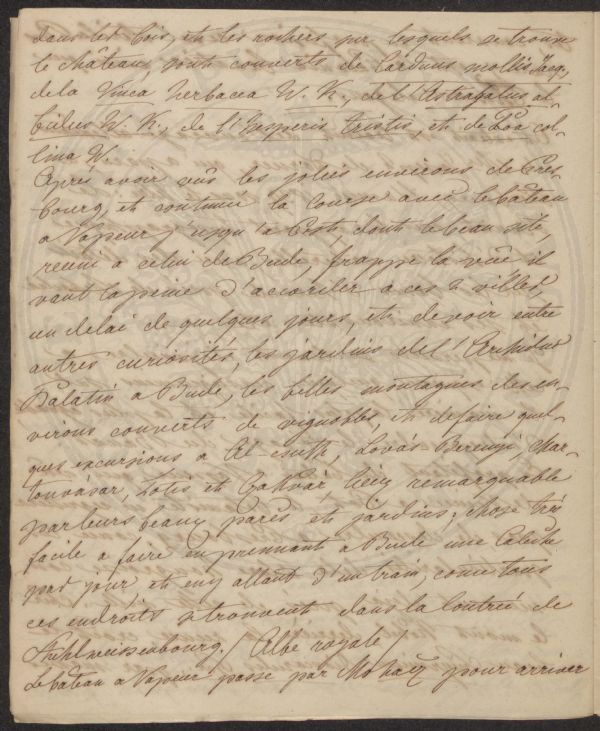 dans les bois, et les rochers sur lesquels se trouve
le château, sont couverts de Carduus mollis Jacq.,
de la Vinca herbacea W. K., de l'Astragalus al-
bidus W. K., de l'Hesperis tristis, et de Poa col-
lina W.
Après avoir vûs les jolies environs de Pres-
bourg, et continué la Course avec le bateau
a Vapeur j'usqu'à Pest, dont le beau site,
reuni a celui de Bude, frappe la vûe il
vaut la peine d'accorder a ces 2 villes,
un delai de quelques jours, et de voir entre
autres curiosités, les jardins de l'Archiduc
Palatin a Bude, les belles montagnes des en-
virons couverts de vignobles, et de faire quel-
ques excursions a Al-csuth, Lovás-Bereny, Mar-
tonvásár, Totis et Csakvár, lieux remarquable
par leurs beaux parcs et jardins; chose trés
facile a faire en prennant a Bude une Caleche
par jour, et en y allant d'un train, come tous
ces endroits se trouvent dans la Contrée de
Stuhlweissenbourg / Albe royale /
Le bateau a Vapeur passe par Mohatz pour arriver